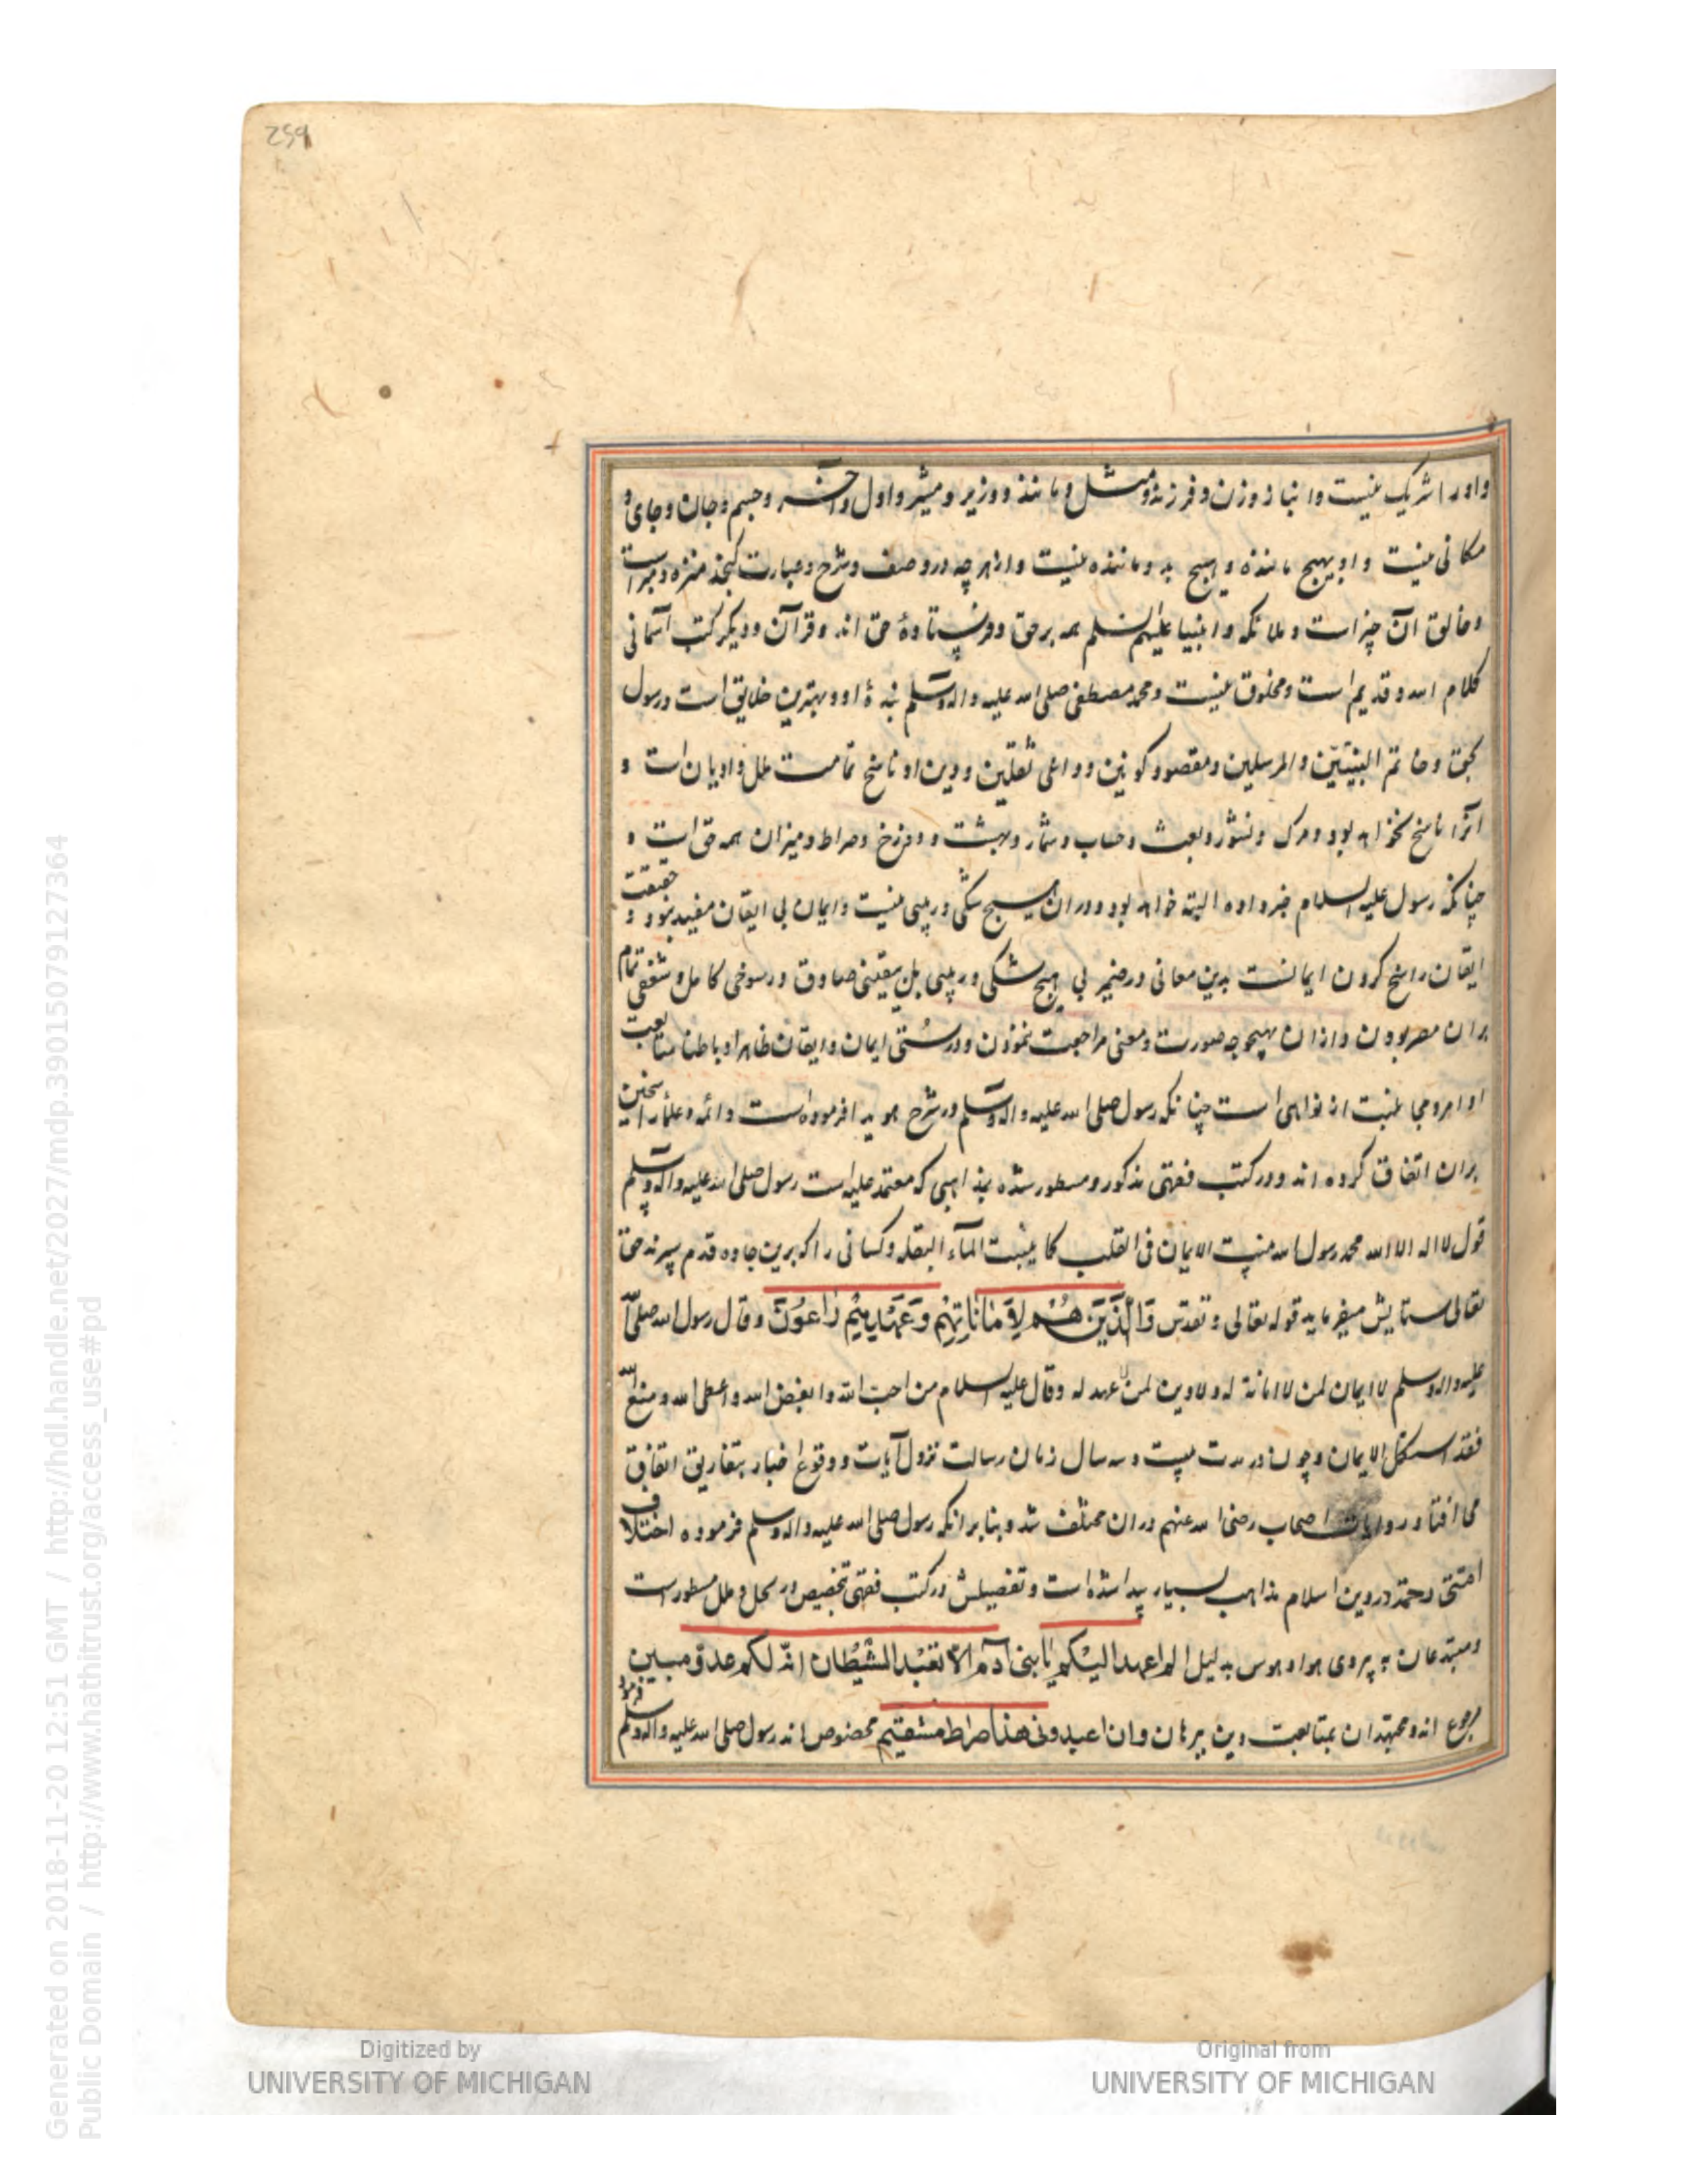 259
واورا شریک نیست وانباز وزن وفرزند ومثل ومانند ووزیر ومشیر واول وآخر وجسم وجان وجای و
مکانی نیست واو بهیچ ماننده وهیچ بدو ماننده نیست وازهرچه در وصف وشرح وعبارت گنجد منزه ومبراست
وخالق آن چیزاست وملائکه وانبیا علیهم السلم همه برحق وفرستادۀ حق اند وقرآن ودیگر کتب آسمانی
کلام الله وقدیم است ومخلوق نیست ومحمد مصطفی صلی الله علیه واله وسلم بندۀ او وبهترین خلایق است ورسول
بحق وخاتم النبیّین والمرسلین ومقصود کونین وداعی ثقلین ودین او ناسخ تمامت ملل وادیان است و
آنرا ناسخ نخواهد بود ومرک ونشور وبعث وحساب وشمار وبهشت ودوزخ وصراط ومیزان همه حق است و
چنانکه رسول علیه السلام خبر داده البته خواهد بود ودران هیچ شکی وریبی نیست وایمان بی ایقان مفید نبود و حقیقت
ایقان راسخ کردن ایمانست بدین معانی در ضمیر بی هیچ شکی وریبی بل یقینی صادق ورسوخی کامل وشغفی تمام
بران مصر بودن وازان بهیچوجه صورت ومعنی مراجعت ننمودن ودرستی ایمان وایقان ظاهرا وباطنا متابعت
اوامر ومجانبت از نواهی است چنانکه رسول صلی الله علیه واله وسلم در شرح هویدا فرموده است وائمه وعلما را سخن
بران اتفاق کرده اند ودر کتب فقهی مذکور ومسطور شده بمذاهبی که معتمد علیه است رسول صلی الله علیه واله وسلم
قول لااله الا الله محمد رسول الله ینبت الایمان فی القلب کما ینبت المآء البقله وکسانی را که برین جاده قدم سپرند حق
تعالی ستایش میفرماید قوله تعالی وتقدس وَالَّذِينَ هُمْ لِأَمَانَاتِهِمْ وَعَهْدِهِمْ رَاعُونَ وقال رسول الله صلی الله
علیه واله وسلم لاایمان لمن لاامانة له ولادین لمن لاعهد له وقال علیه السلام من احب لله وابغض لله واعطی لله ومنع لله
فقد استکمل الایمان وچون در مدت بیست وسه سال زمان رسالت نزول آیات ووقوع اخبار بتفاریق اتفاق
می افتاد روایات اصحاب رضی الله عنهم دران مختلف شد وبنا برانکه رسول صلی الله علیه واله وسلم فرموده اختلاف
امتی رحمة در دین اسلام مذاهب بسیار پیدا شده است وتفصیلش در کتب فقهی بتخصیص در نحل وملل مسطورست
ومبتدعان به پیروی هوا وهوس بدلیل الم اعهد الیکم یا بنی آدم الا تعبدالشیطان انه لکم عدو مبین
مرجوع اند ومجتهدان بمتابعت دین ببرهان وان اعبدونی هذا صراط مستقیم مخصوص اند رسول صلی الله علیه واله وسلم فرمود
Digitized by
UNIVERSITY OF MICHIGAN
Original from
UNIVERSITY OF MICHIGAN
Generated on 2018-11-20 12:51 GMT / http://hdl.handle.net/2027/mdp.39015079127364
Public Domain / http://www.hathitrust.org/access_use#pd